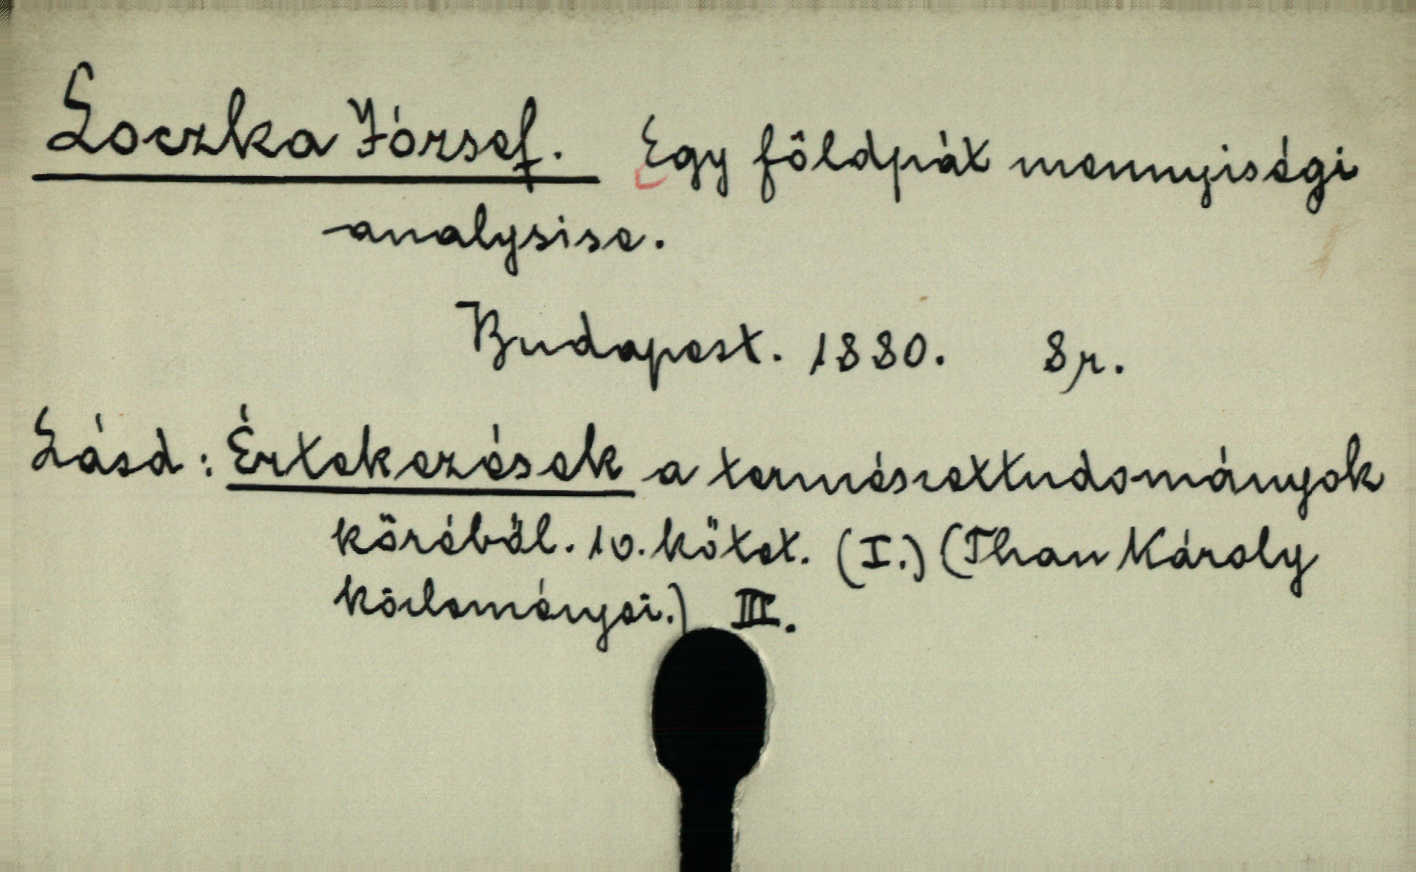 Loczka József. Egy földpát mennyiségi
analysise.
Budapest. 1880. 8r.
Lásd: Értekezések a természettudományok
köréből. 10. kötet. (I.) (Than Károly
közleményei.) III.